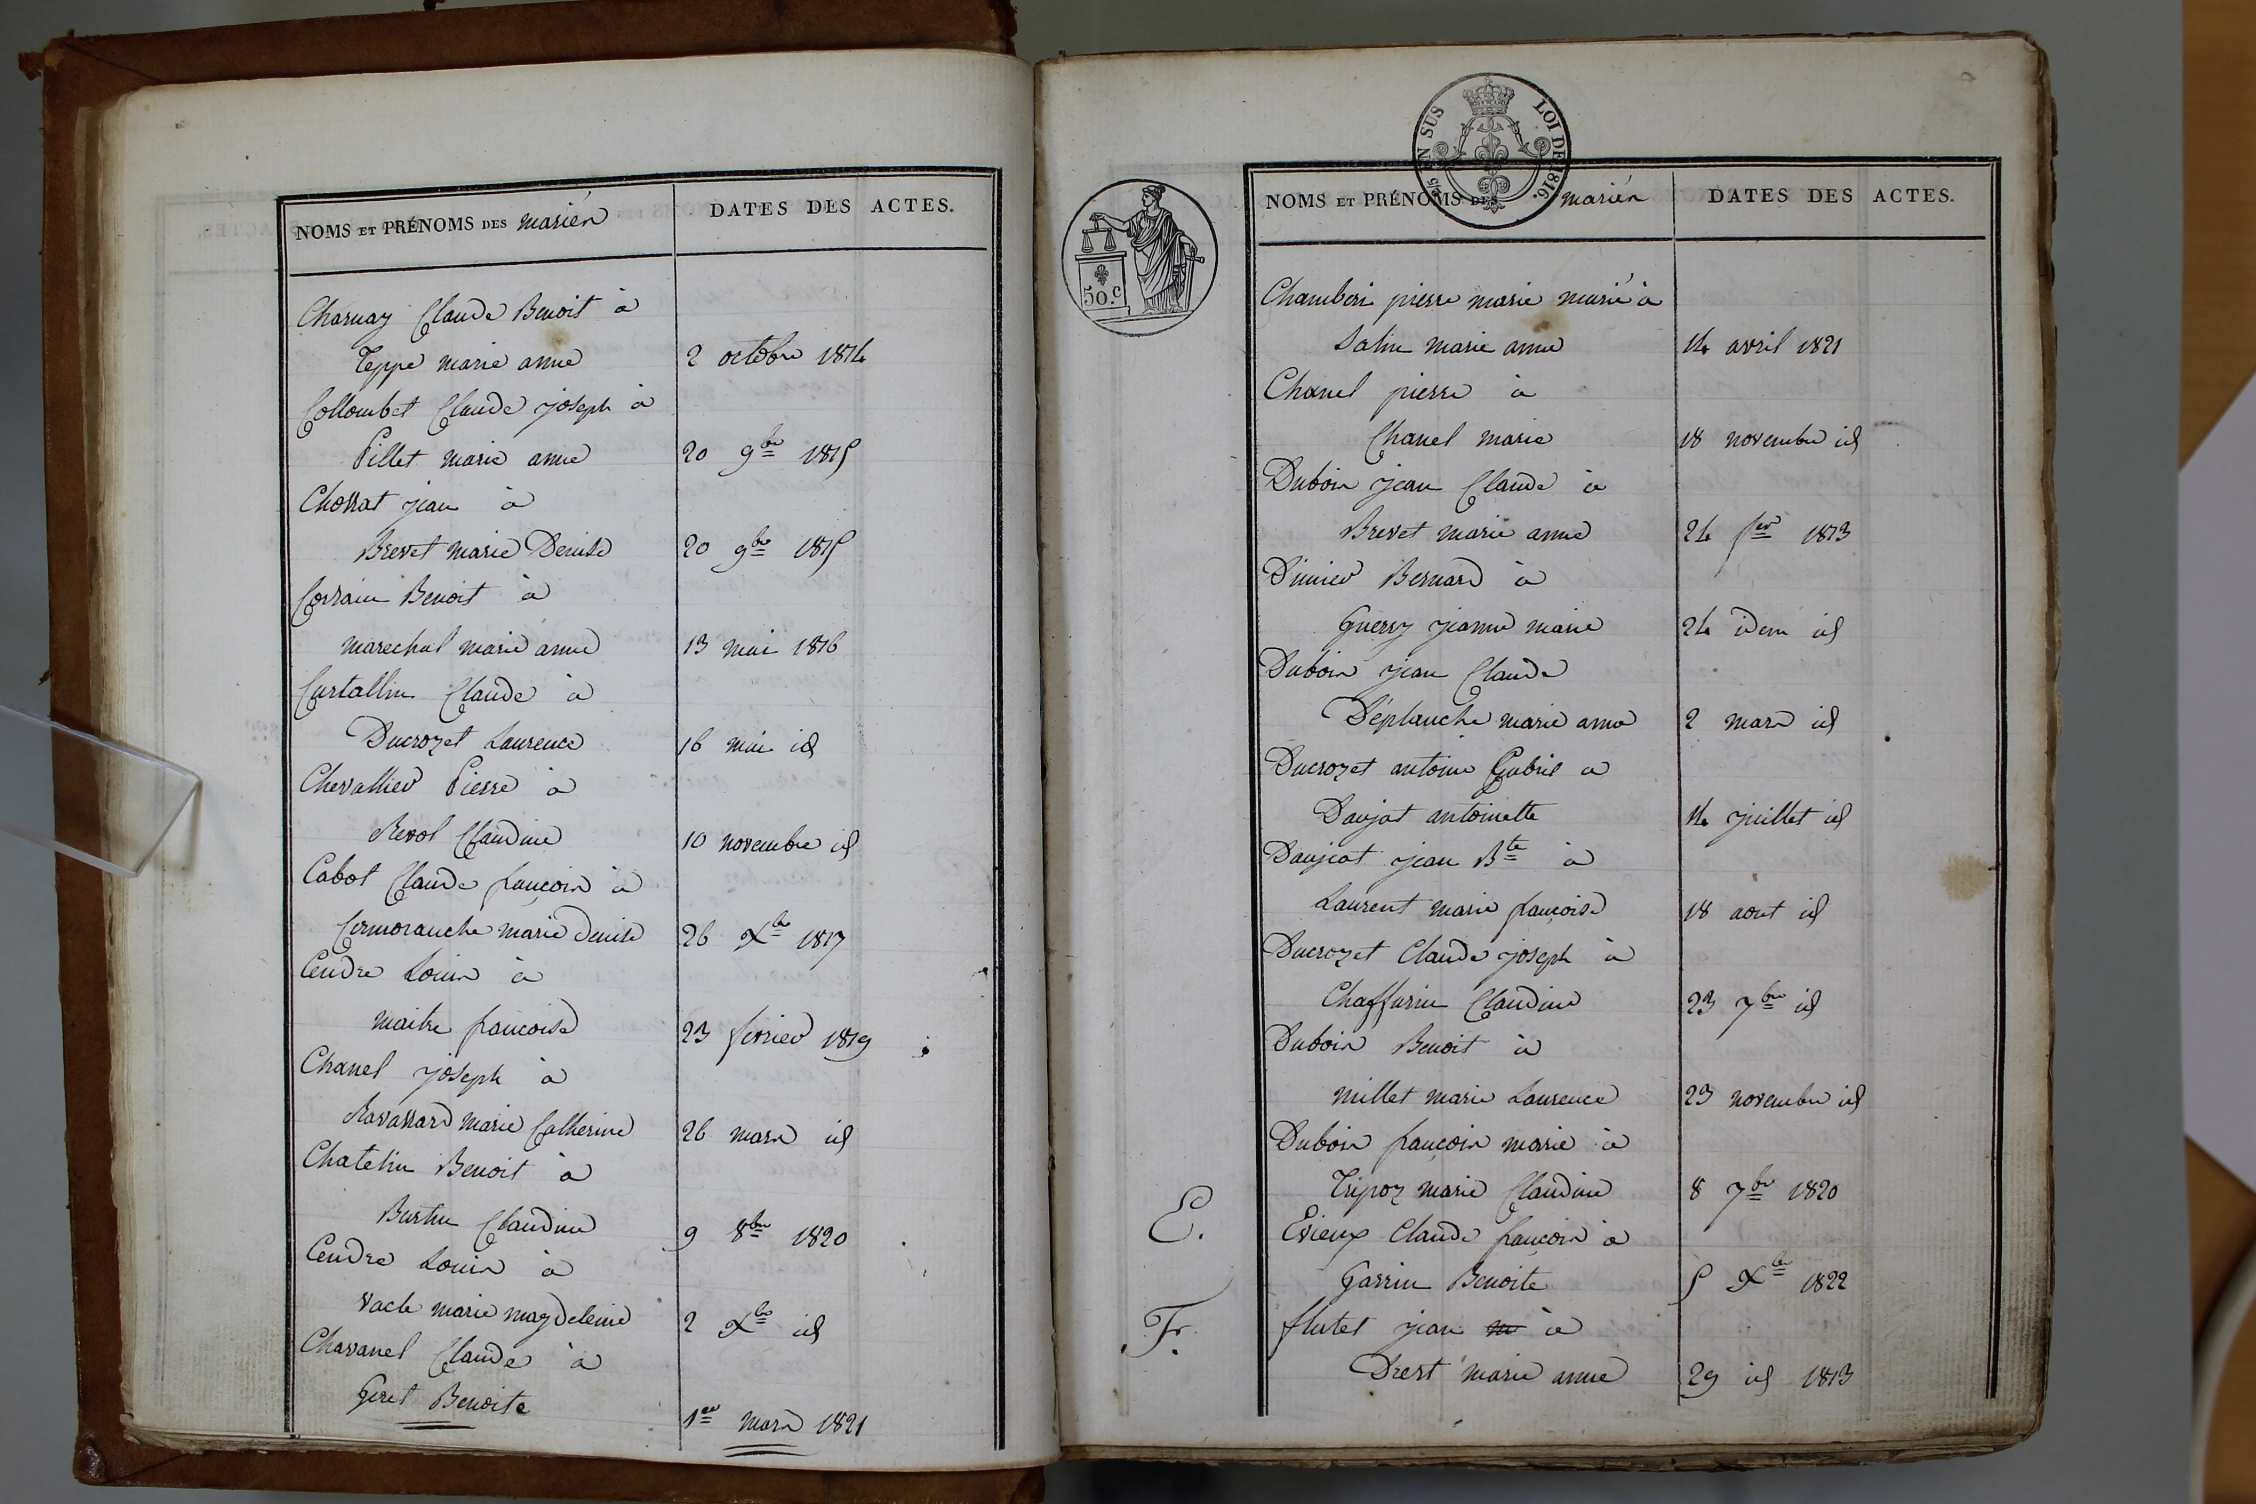 NOMS ET PRÉNOMS DES mariés
DATES DES ACTES.
Charnay Claude Benoit à
Teppe marie anne 2 octobre 1814
Collombet Claude joseph à
Pillet marie anne 20 9bre 1815
Chossat jean à
Brevet marie Denise 20 9bre 1815
Corsain Benoit à
marechal marie anne 13 mai 1816
Curtallin Claude à
Ducrozet Laurence 16 mai id
Chevallier Pierre à
Revol Claudine 10 novembre id
Cabot Claude françois à
Cormoranche marie denise 26 Xbre 1817
Cendre Louis à
maitre françoise 23 fevrier 1819
Chanel joseph à
Ravassard marie Catherine 26 mars id
Chatelin Benoit à
Burtin Claudine 9 8bre 1820
Cendre Louis à
vacle marie magdeleine 2 Xbre id
Chavanel Claude à
Geret Benoite 1er mars 1821
5/10 EN SUS LOI DE 1816.
50.c
NOMS ET PRÉNOMS DES mariés
DATES DES ACTES.
Chamberi pierre marie marié à
Salin marie anne 14 avril 1821
Chanel pierre à
Chanel marie 18 novembre id
Dubois jean Claude à
Brevet marie anne 24 fer 1813
Dimier Bernard à
Guerry jeanne marie 24 idem id
Dubois jean Claude
Déplanche marie anne 2 mars id
Ducrozet antoine Gabriel a
Daujat antoinette 14 juillet id
Daujat jean Bte à
Laurent marie françoise 18 aout id
Ducrozet Claude joseph à
Chaffurin Claudine 23 7bre id
Dubois Benoit à
millet marie Laurence 23 novembre id
Dubois françois marie à
Tripoz marie Claudine 8 7bre 1820
E.
Evieux Claude françois à
Garrin Benoite 5 Xbre 1822
F.
flutet jean m à
Drevt marie anne 29 id 1813